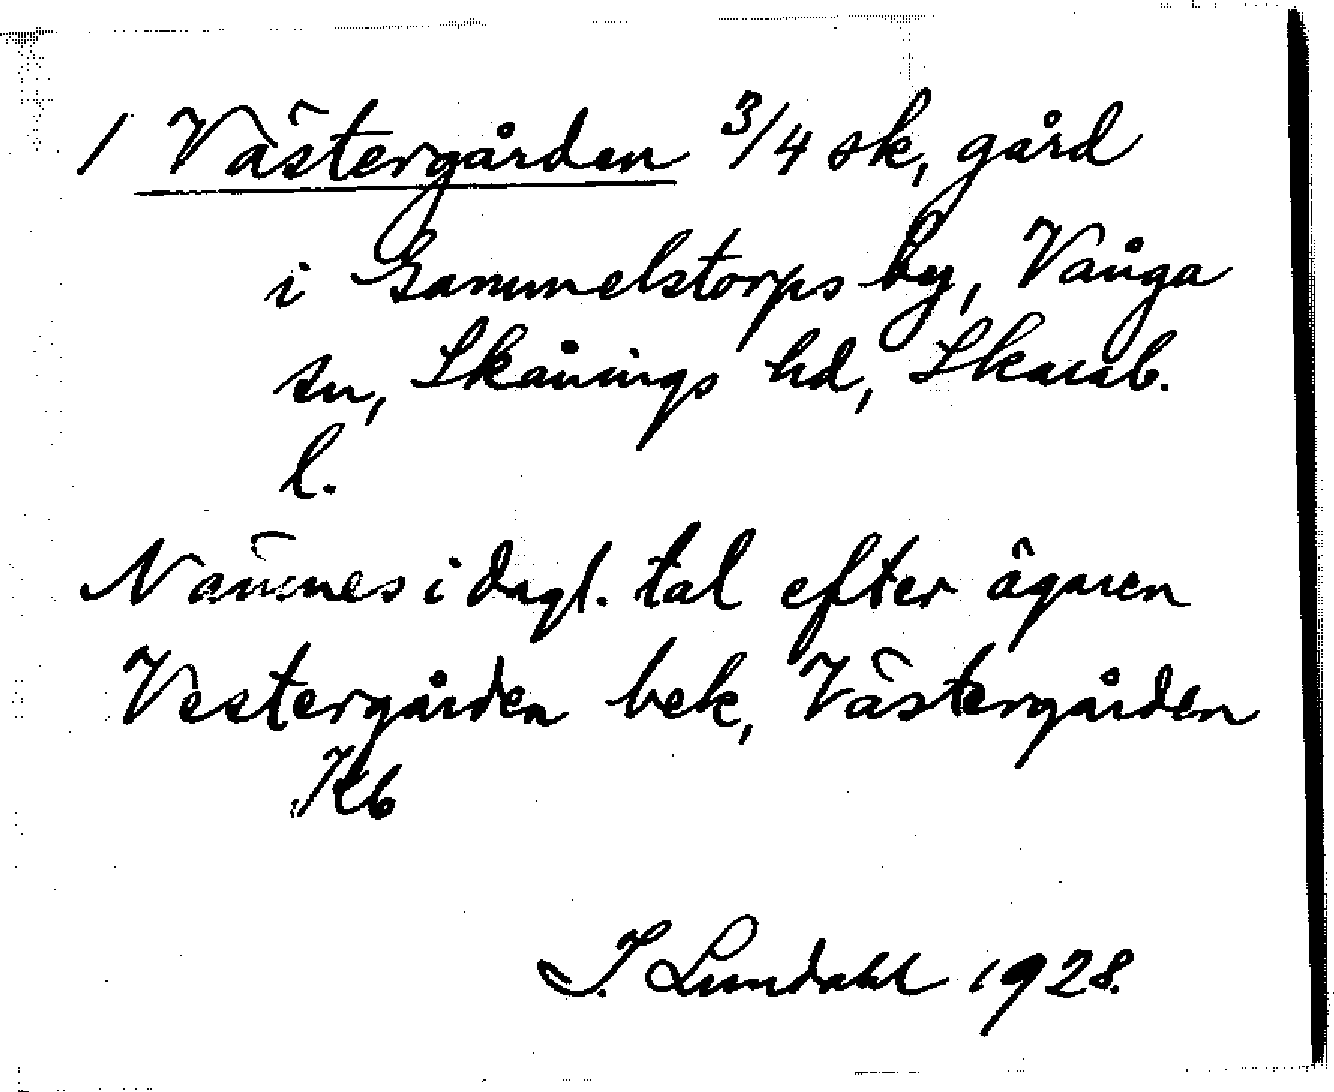 1 Västergården 3/4 sk, gård
i Gammelstorps by, Vånga
sn, Skånings hd, Skarab.
l.
Nämnes i dagl. tal efter ägaren
Vestergården bek, Västergården
Kb
I. Lundahl 1928.